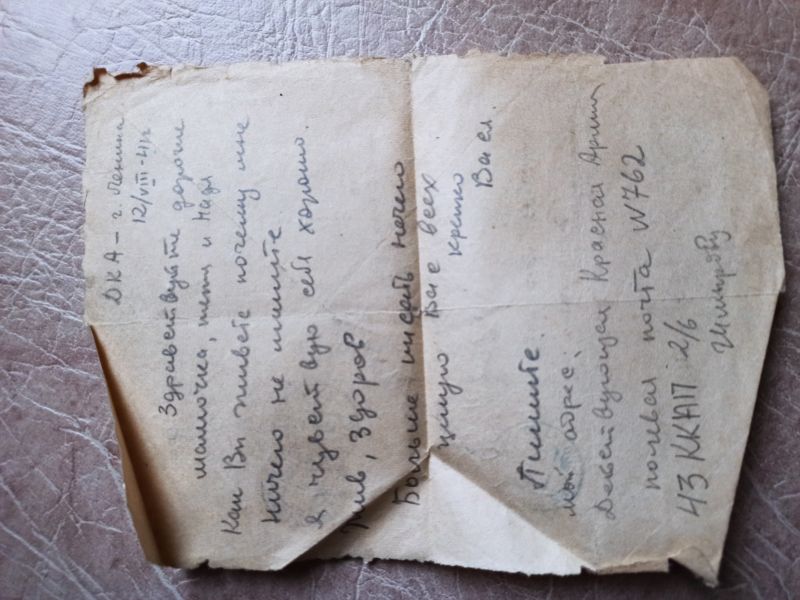 ДКА - г. Ленина
12/VIII-41 г
Здравствуйте дорогие
мамочка, тетя и Надя
Как Вы живете почему мне
ничего не пишите
я чувствую себя хорошо.
Жив, здоров
Больше писать нечего
целую Вас всех
крепко Вася
Пишите.
мой адрес:
Действующая Красная Армия
полевая почта N762
43 ККАП 2/б